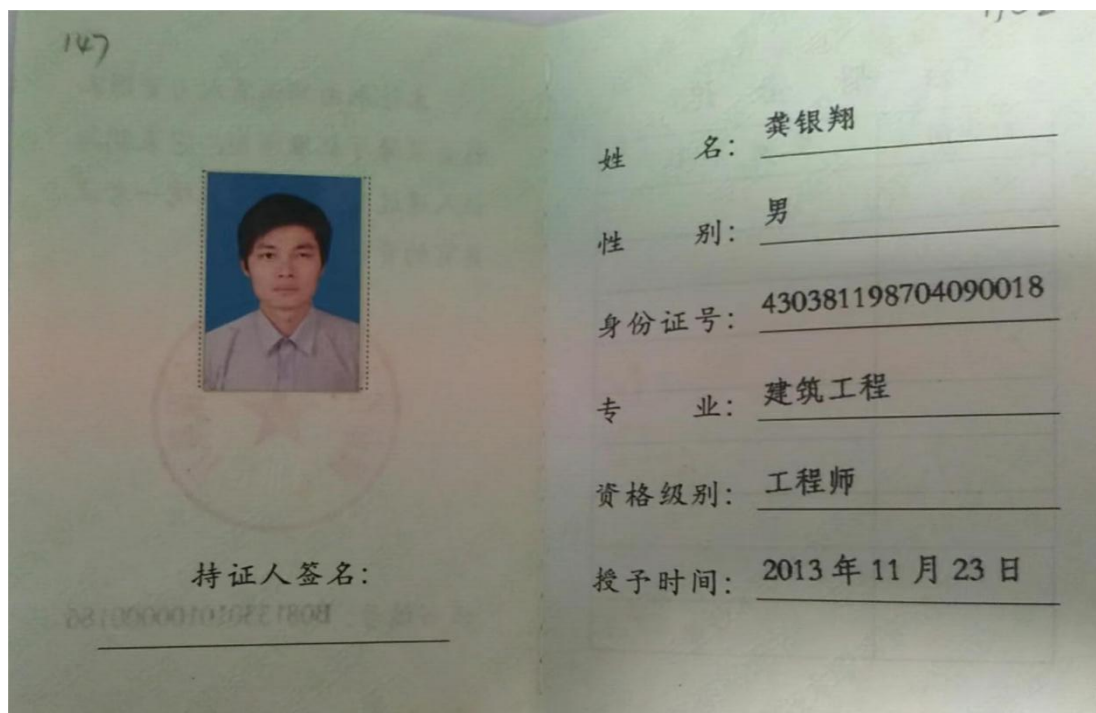 147
姓 名: 龚银翔
性 别: 男
身份证号: 430381198704090018
专 业: 建筑工程
资格级别: 工程师
授予时间: 2013 年 11 月 23 日
持证人签名: